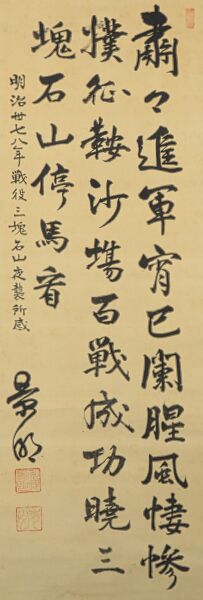 肅々進軍宵已闌腥風悽慘
撲征鞍沙場百戰成功曉三
塊石山停馬看
明治丗七八年戰役三塊石山夜襲所感
景明